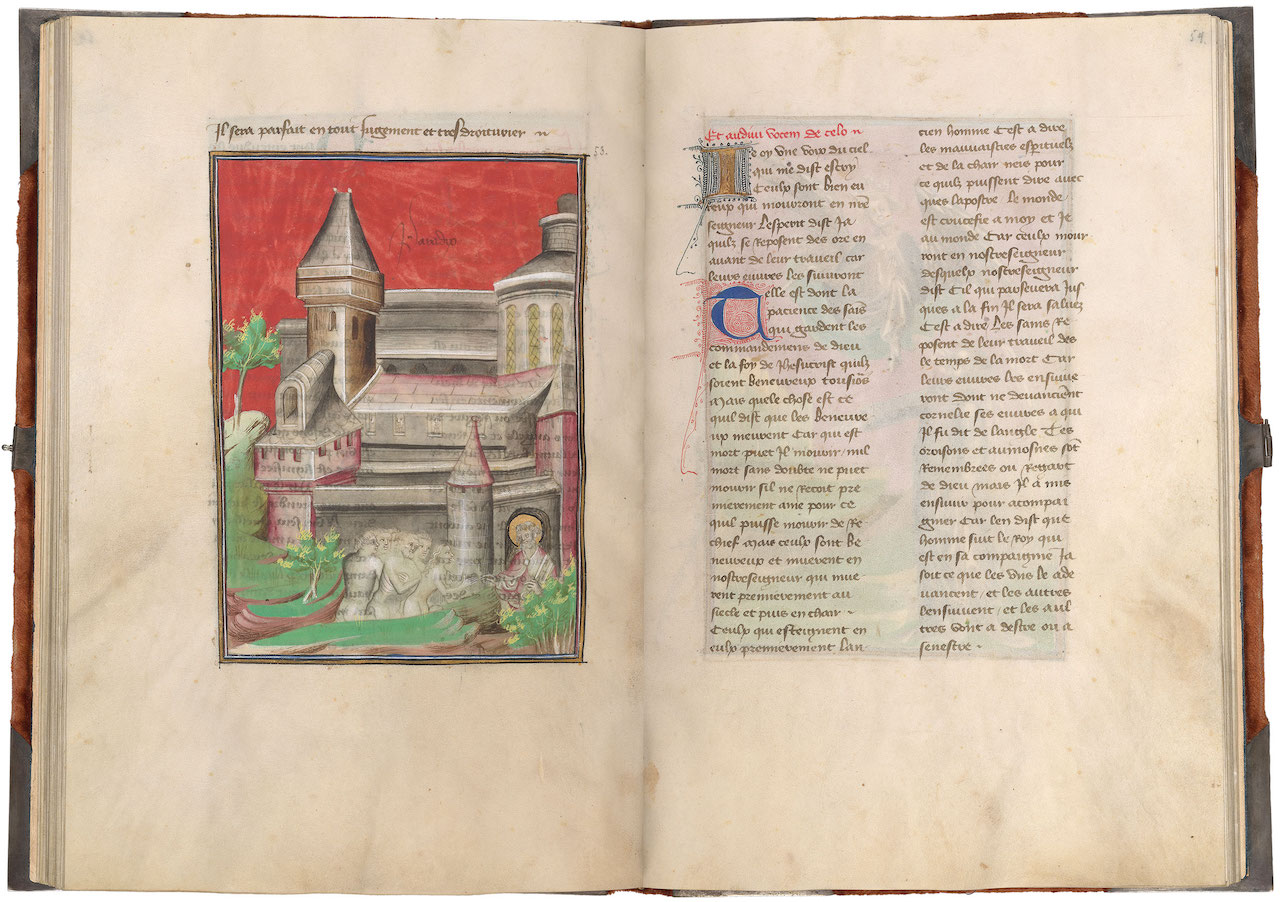 Il sera parfait en tout Jugement et tresdroiturier
53.
54.
Et audivi vocem de celo
Ie oy une voix du ciel
qui me dist escry
Ceulx sont bien eu
reux qui mourront en nre
seigneur Lesperit dist Ja
quilz se reposent des ore en
avant de leur traveil car
leurs euvres les suivront
Celle est dont la
pacience des sais
qui gardent les
commandemens de dieu
et la foy de Jhesucrist quilz
soient beneureux tousiors
Mais quele chose est ce
quil dist que les beneure
ux meurent Car qui est
mort puet Il mourir / nul
mort sans doubte ne puet
mourir sil ne Recoit pre
mierement ame pour ce
quil puisse mourir de Re
chief Mais ceulx sont be
neureux et muerent en
nostreseigneur qui mue
rent premierement au
siecle et puis en chair .
Ceulx qui esteignent en
eulx premierement lan
cien homme Cest a dire
les mauvaisties espirituelz
et de la chair neis pour
ce quilz puissent dire avec
ques lapostre Le monde
est crucefie a moy et Je
au monde Car ceulx mour
ront en nostreseigneur
desquelx nostreseigneur
dist Cil qui parsevera Jus
ques a la fin Il sera saluez
Cest a dire Les sains Re
posent de leur traveil des
le temps de la mort Car
leurs euvres les ensuive
ront dont ne devancierent
cornelie ses euvres a qui
Il fu dit de langle Tes
oroisons et aumosnes sont
Remembrees ou Regart
de dieu mais Il a mis
ensuivir pour acompai
gnier Car len dist que
homme suit le Roy qui
est en sa compaignie Ja
soit ce que les uns le ade
vancent / et les autres
lensuivent / et les aul
tres vont a destre ou a
senestre .